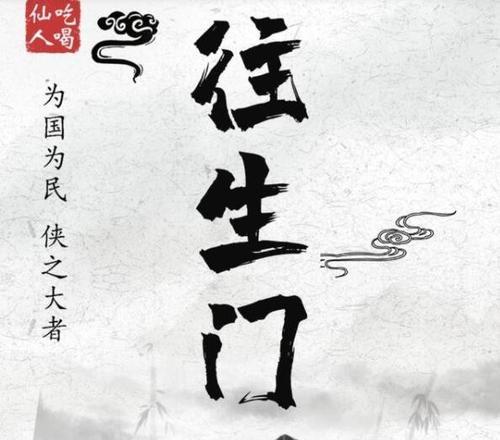 往生门
为国为民 侠之大者
吃喝
仙人